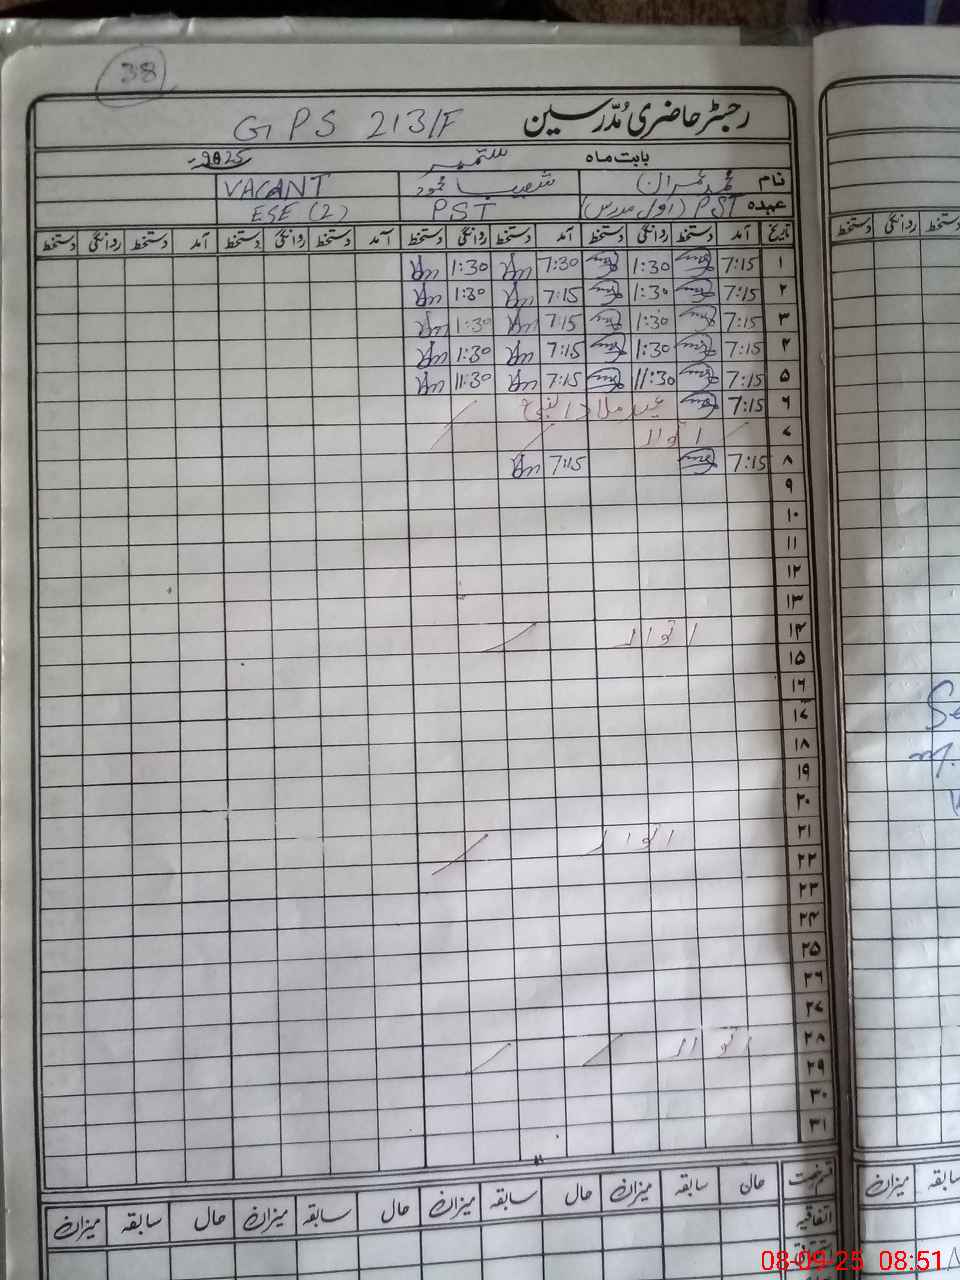 38
رجسٹر حاضری مُدّرسین GPS 213/F
بابت ماہ ستمبر 2025ء
نام محمد عمران شعیب محمود VACANT
عہدہ PST (اول مدرس) PST ESE (2)
تاریخ آمد دستخط روانگی دستخط آمد دستخط روانگی دستخط آمد دستخط روانگی دستخط آمد دستخط روانگی دستخط
۱ 7:15 1:30 7:30 1:30
۲ 7:15 1:30 7:15 1:30
۳ 7:15 1:30 7:15 1:30
۴ 7:15 1:30 7:15 1:30
۵ 7:15 11:30 7:15 11:30
۶ 7:15 عید میلاد النبیؐ
۷ اتوار
۸ 7:15 7:15
۹
۱۰
۱۱
۱۲
۱۳
۱۴ اتوار
۱۵
۱۶
۱۷
۱۸
۱۹
۲۰
۲۱ اتوار
۲۲
۲۳
۲۴
۲۵
۲۶
۲۷
۲۸ اتوار
۲۹
۳۰
۳۱
قسم رخصت حال سابقہ میزان حال سابقہ میزان حال سابقہ میزان حال سابقہ میزان
اتفاقیہ
دستخط روانگی دستخط
سابقہ میزان
08-09-25 08:51